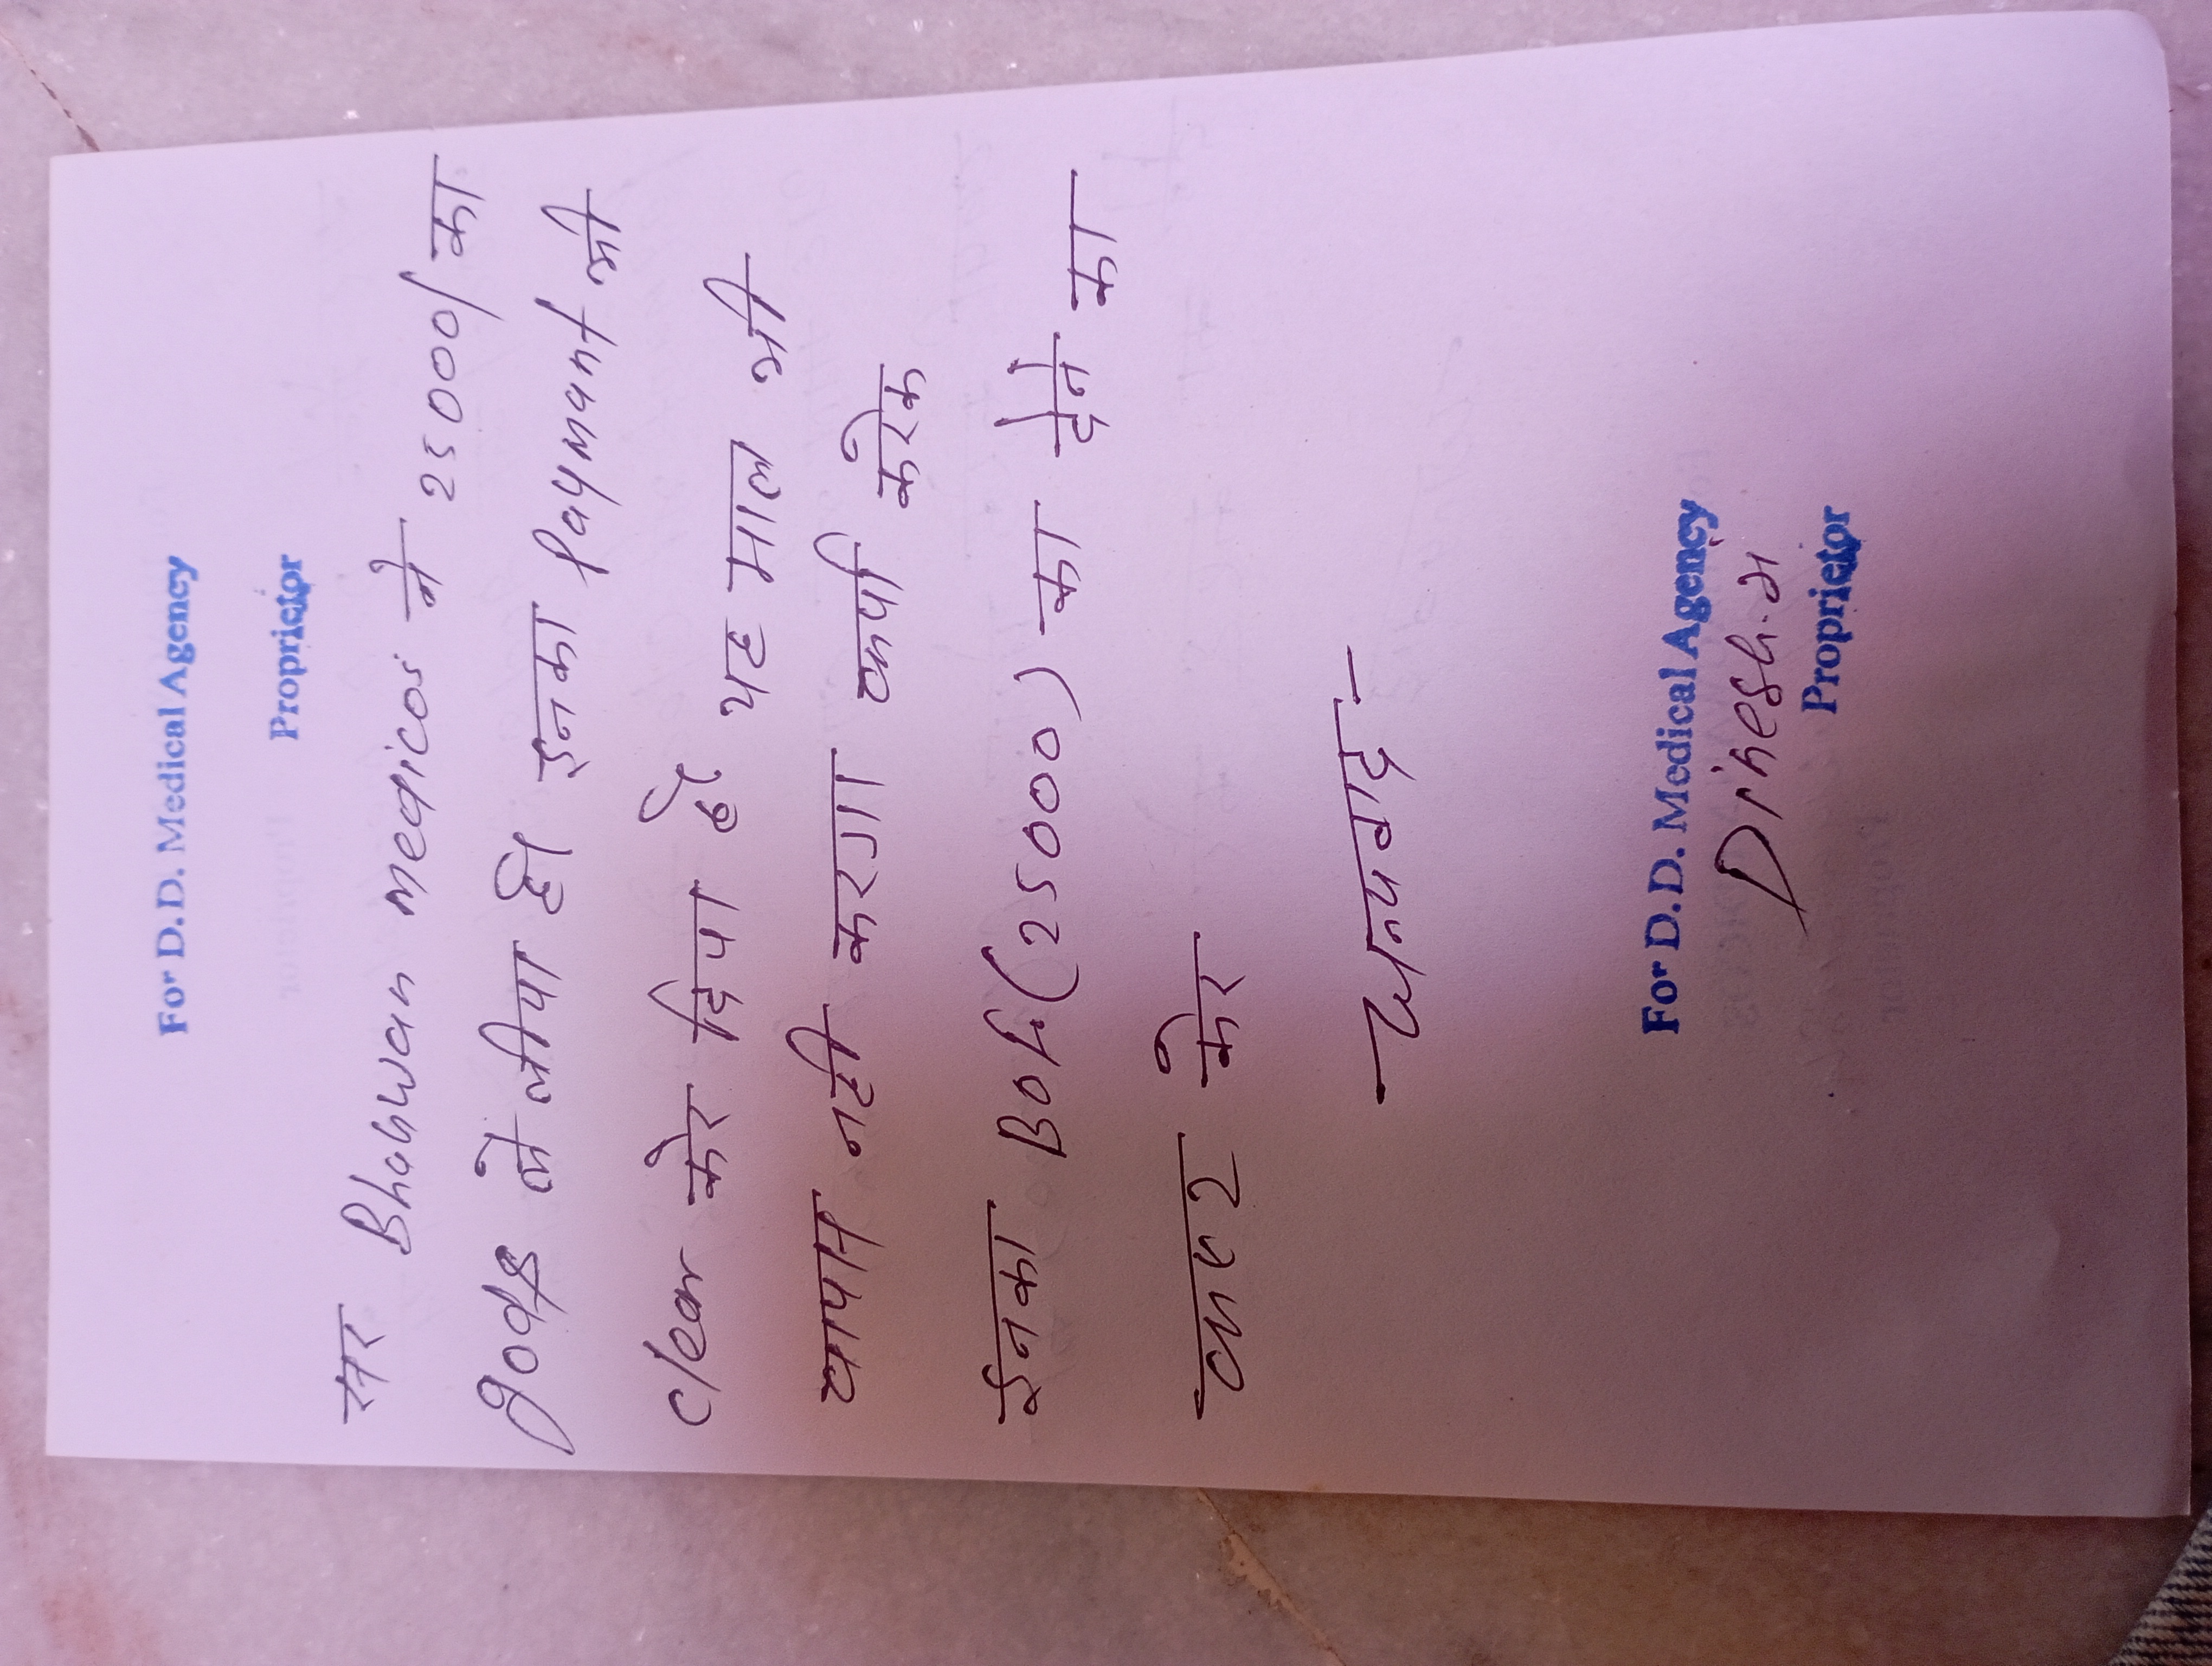 For D.D. Medical Agency
Proprietor
सर Bhagwan medicos ने 25000/ का
gods ले लीया है। इनका Paymant भी
clear कर दिया हूँ यह माल भी
वापस नही करगा क्रपा करके
इनका (25000) का होने का
कावर करे
धन्यवाद
For D.D. Medical Agency
Dinesh.m
Proprietor